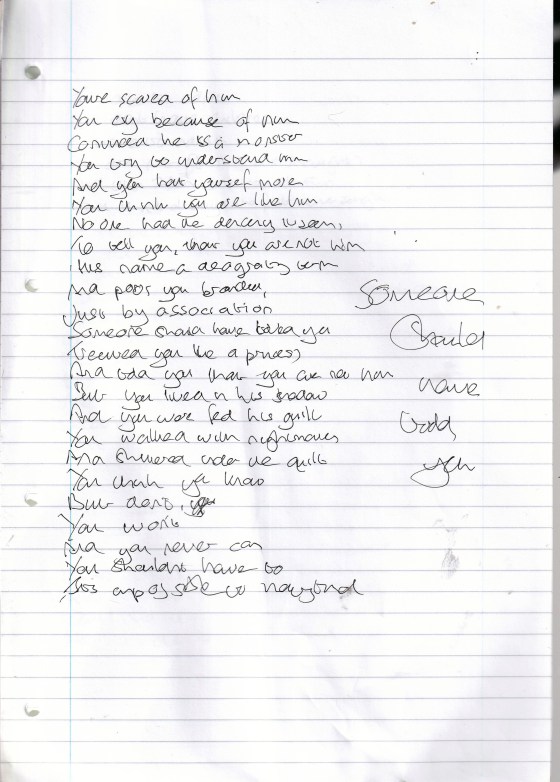 You're scared of him
You cry because of him
Convinced he is a monster
You try to understand him
And you hate yourself more
You think you are like him
No one had the decency it seems,
To tell you, that you are not him
His name a degrading term
And poor you branded,
Just by association
Someone should have told you
Treated you like a princess
And told you that you are not him
But you lived in his shadow
And you were fed his guilt
You walked with nightmares
And shivered under the quilt
You think you know
But don't,
You won't
And you never can
You shouldn't have to
It's impossible to
Someone
Should
have
told
you